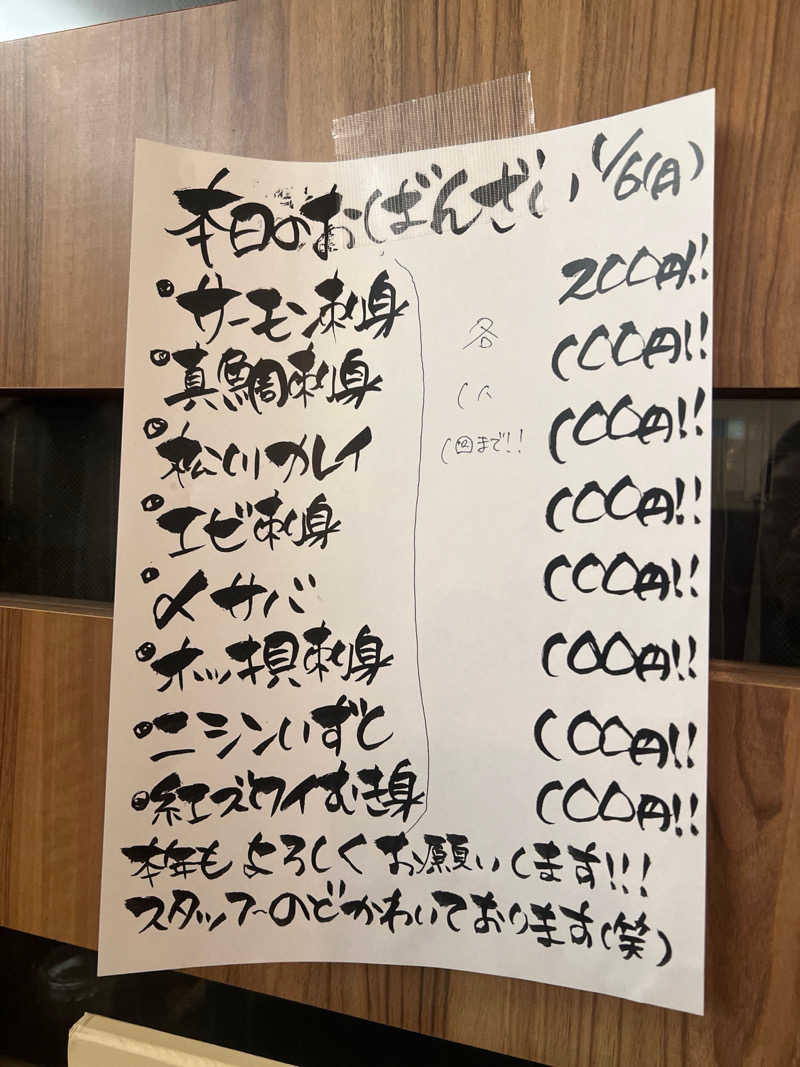 本日のおばんざい 1/6(月)
・サーモン刺身 200円!!
・真鯛刺身 100円!!
・松川カレイ 100円!!
・エビ刺身 100円!!
・〆サバ 100円!!
・ホッキ貝刺身 100円!!
・ニシンいずし 100円!!
・紅ズワイむき身 100円!!
各
1人
1回まで!!
本年もよろしくお願いします!!!
スタッフ〜のどかわいております(笑)